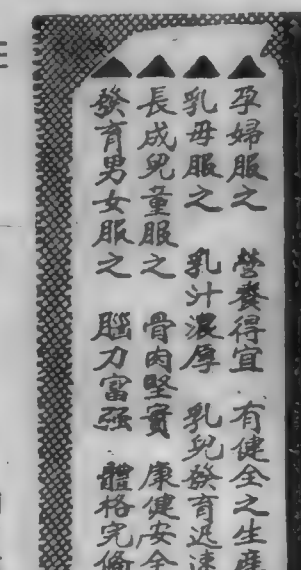 ▲孕婦服之 營養得宜 有健全之生產
▲乳母服之 乳汁濃厚 乳兒發育迅速
▲長成兒童服之 骨肉堅實 康健安全
▲發育男女服之 腦力富强 體格完備